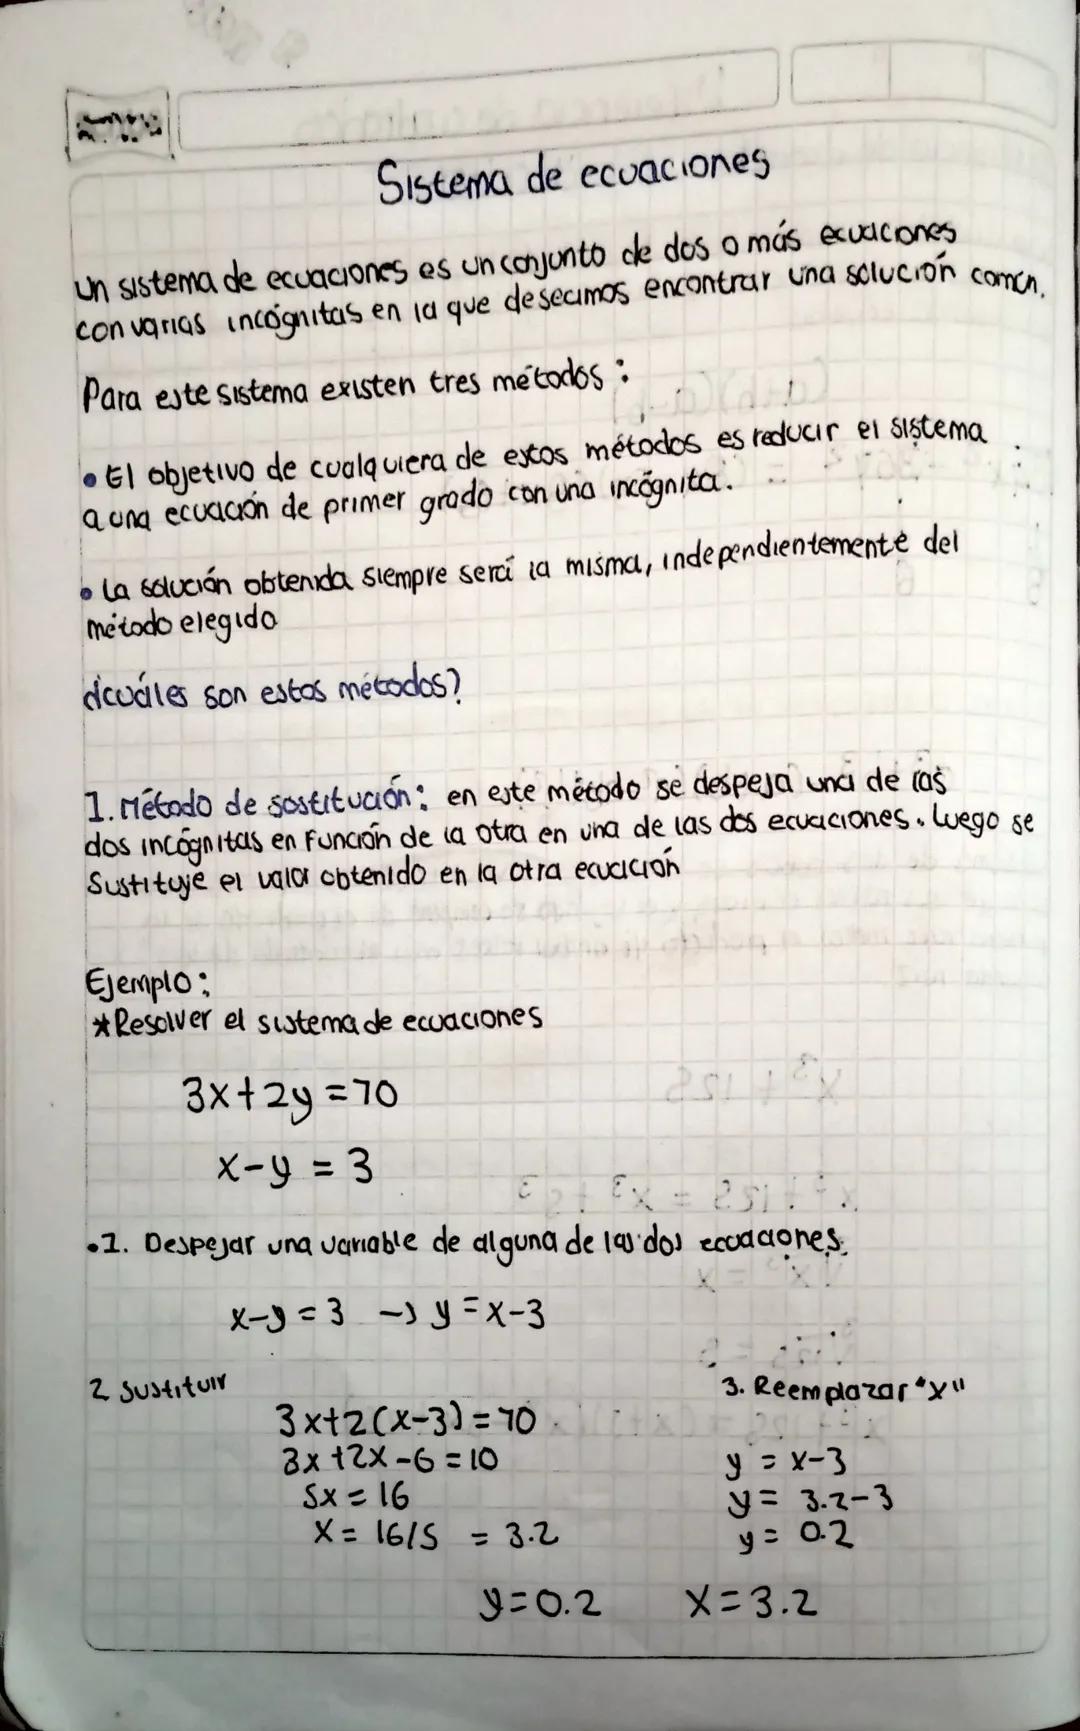 Sistema de ecuaciones
Un sistema de ecuaciones es un conjunto de dos o más ecuaciones
con varias incógnitas en la que deseamos encontrar una solución común.
Para este sistema existen tres métodos:
• El objetivo de cualquiera de estos métodos es reducir el sistema
a una ecuación de primer grado con una incógnita.
• La solución obtenida siempre será la misma, independientemente del
método elegido
¿cuáles son estos métodos?
1. Método de sostitución: en este método se despeja una de las
dos incógnitas en Función de la otra en una de las dos ecuaciones. Luego se
Sustituye el valor obtenido en la otra ecuación
Ejemplo:
*Resolver el sistema de ecuaciones
3x+2y=10
x-y = 3
•1. Despejar una variable de alguna de las dos ecuaciones.
x-y=3 → y=x-3
2 Sustituir
3x+2(x-3)=10
3x+2x-6=10
5x=16
X=16/5 = 3.2
3. Reemplazar "x"
y = x-3
y = 3.2-3
y = 0.2
y=0.2 X=3.2